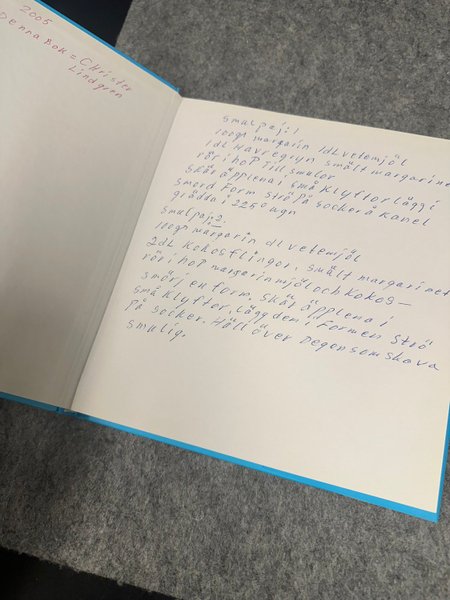 2005
Denna Bok = Christer
Lindgren
Smulpaj: 1
100gr margarin 1dl vetemjöl
1dl Havregryn smält margarinet
rör ihop till smulor
Skär äpplena i små klyftor lägg i
smord form strö på socker å kanel
grädda i 225° ugn
Smulpaj: 2.
100gr margarin dl vetemjöl
2dl kokosflingor, smält margarinet
rör ihop margarin mjöl och kokos –
smörj en form, skär äpplena i
små klyftor. Lägg dem i formen strö
på socker. Häll över degen som ska va
smulig.